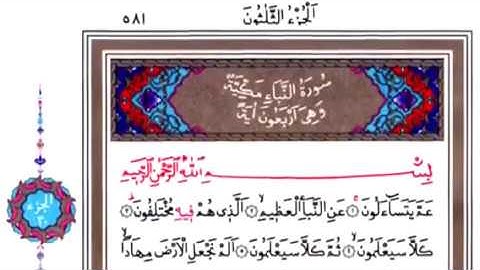 الجزء الثلثون ٥٨١
سورة النبإ مكية
وهي اربعون اية
بسم الله الرحمن الرحيم
عم يتساءلون ١ عن النبإ العظيم ٢ الذي هم فيه مختلفون ٣
كلا سيعلمون ٤ ثم كلا سيعلمون ٥ الم نجعل الارض مهادا ٦
الجزء
٣٠